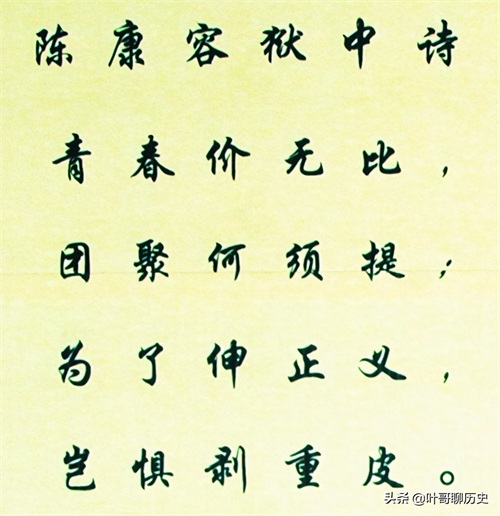 陈康容狱中诗
青春价无比，
团聚何须提；
为了伸正义，
岂惧剥重皮。
头条@叶哥聊历史